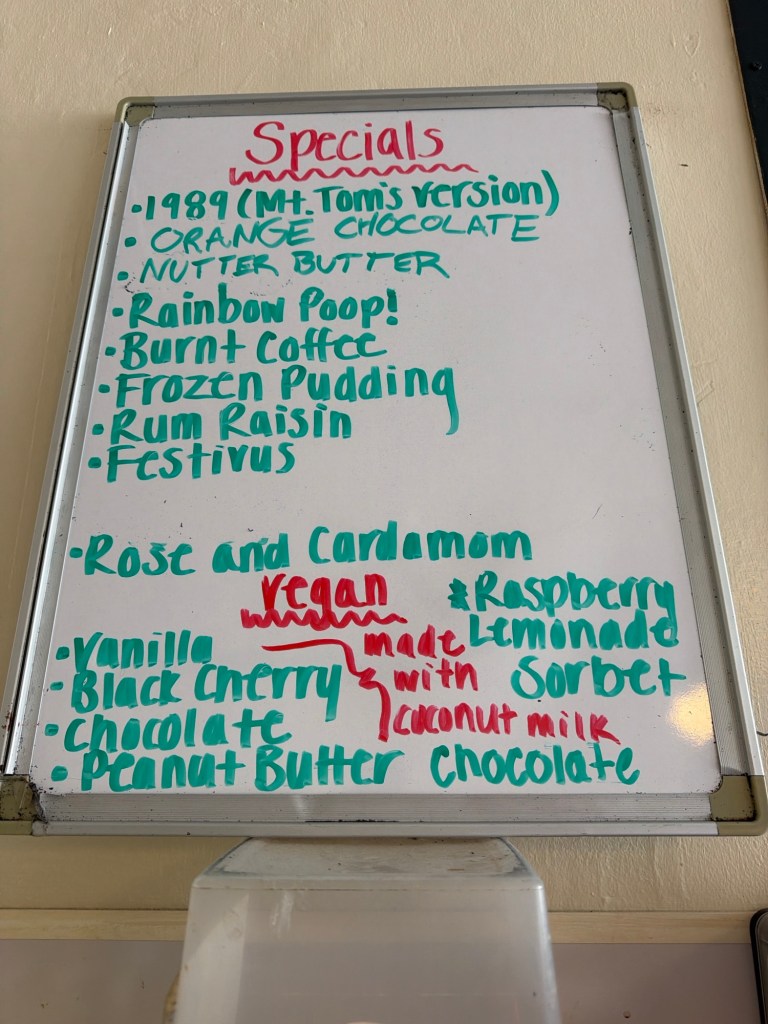 Specials
• 1989 (Mt. Tom's version)
• ORANGE CHOCOLATE
• NUTTER BUTTER
• Rainbow Poop!
• Burnt Coffee
• Frozen Pudding
• Rum Raisin
• Festivus
• Rose and Cardamom
vegan
• Vanilla
• Black Cherry
• Chocolate
• Peanut Butter Chocolate
made
with
coconut milk
* Raspberry
Lemonade
Sorbet